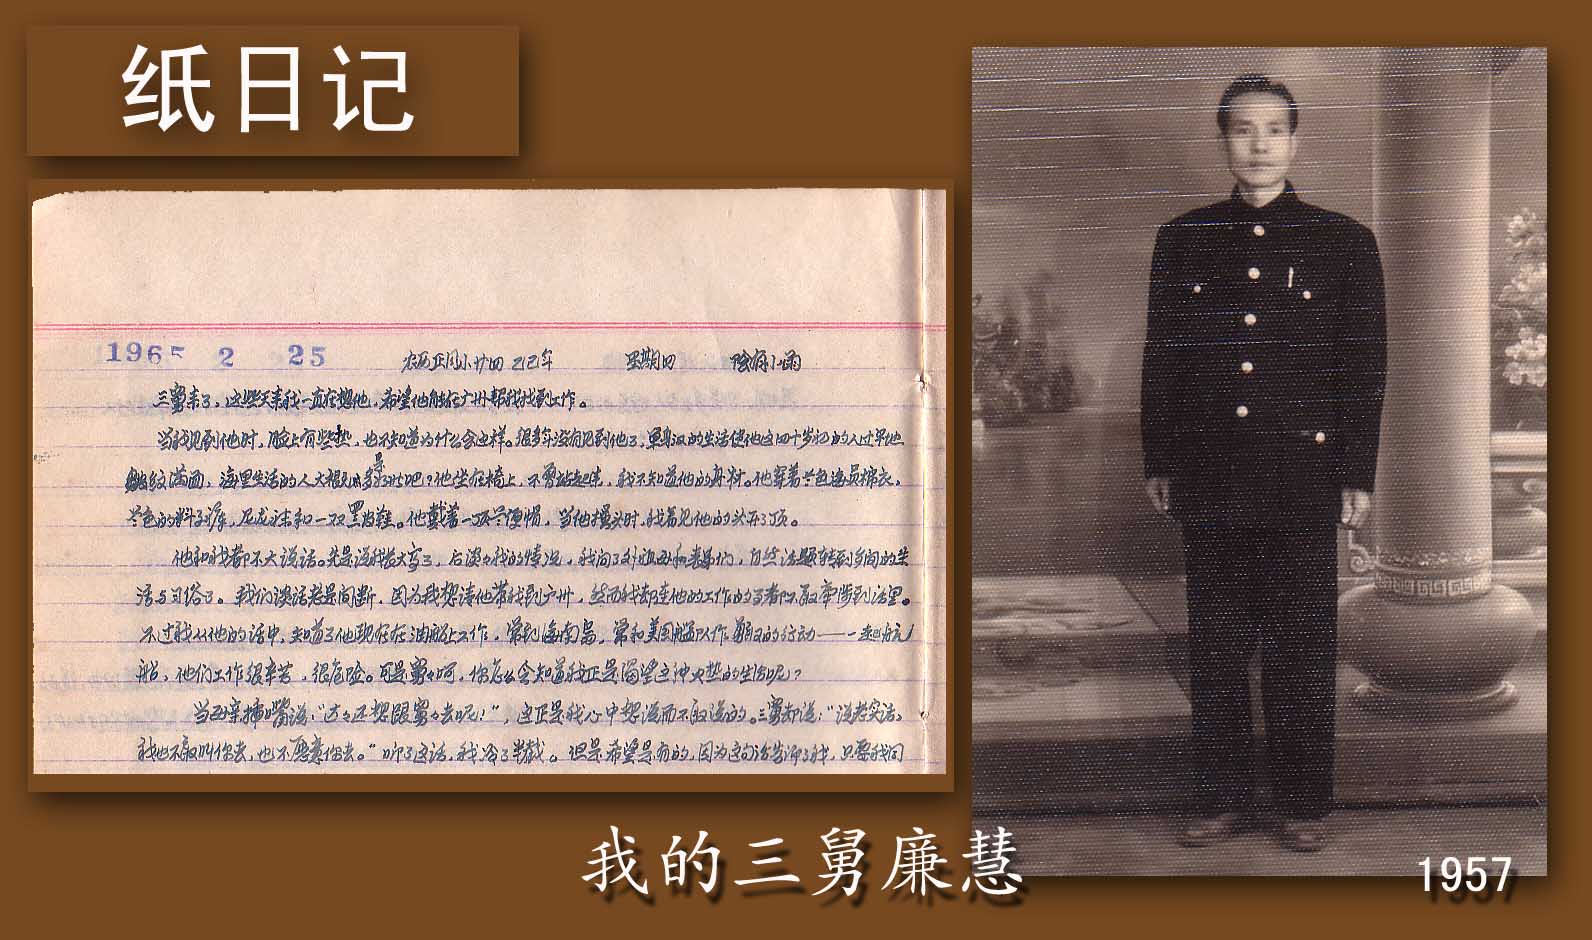 纸日记
1965 2 25 农历正月小廿四 乙巳年 星期四 阴有小雨
三舅来了，这些天来我一直在想他，希望他能在广州帮我找到工作。
当我见到他时，脸上有些热，也不知道为什么会这样。很多年没有见到他了，单身汉的生活使他这四十岁初的人过早地
皱纹满面，海里生活的人大概都是如此吧？他坐在椅上，不曾站起来，我不知道他的身材。他穿着兰色海员棉衣，
兰色的料子裤，尼龙袜和一双黑皮鞋。他戴着一顶兰便帽，当他摸头时，我看见他的头开了顶。
他和我都不大说话。先是说我长大高了，后谈々我的情况，我问了外祖母和表弟们，自然话题转到乡间的生
活与习俗了。我们谈话老是间断，因为我想请他带我到广州，然而我却连他的工作的 都不敢牵涉到话里。
不过我从他的话中，知道了他现在在油船上工作，常到海南岛，常和美国艇队作 的行动——一起航
船，他们工作很辛苦，很危险。可是舅々呵，你怎么会知道我正是渴望这种火热的生活呢？
当母亲插嘴说：“达々还想跟舅々去呢！”，这正是我心中想说而不敢说的。三舅却说：“说老实话，
我也不敢叫你去，也不愿意你去。”听了这话，我冷了半截。但是希望是有的，因为这句话告诉了我，只要我同
我的三舅廉慧
1957